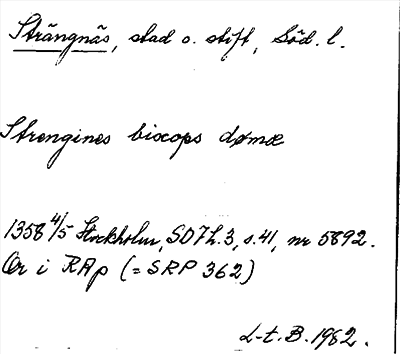 Strängnäs, stad o. stift, Söd. l.
Strengines biscops dømæ
1358 4/5 Stockholm, SD 7 h. 3, s. 41, nr 5892.
Or i RAp (= SRP 362)
L-t. B. 1982.